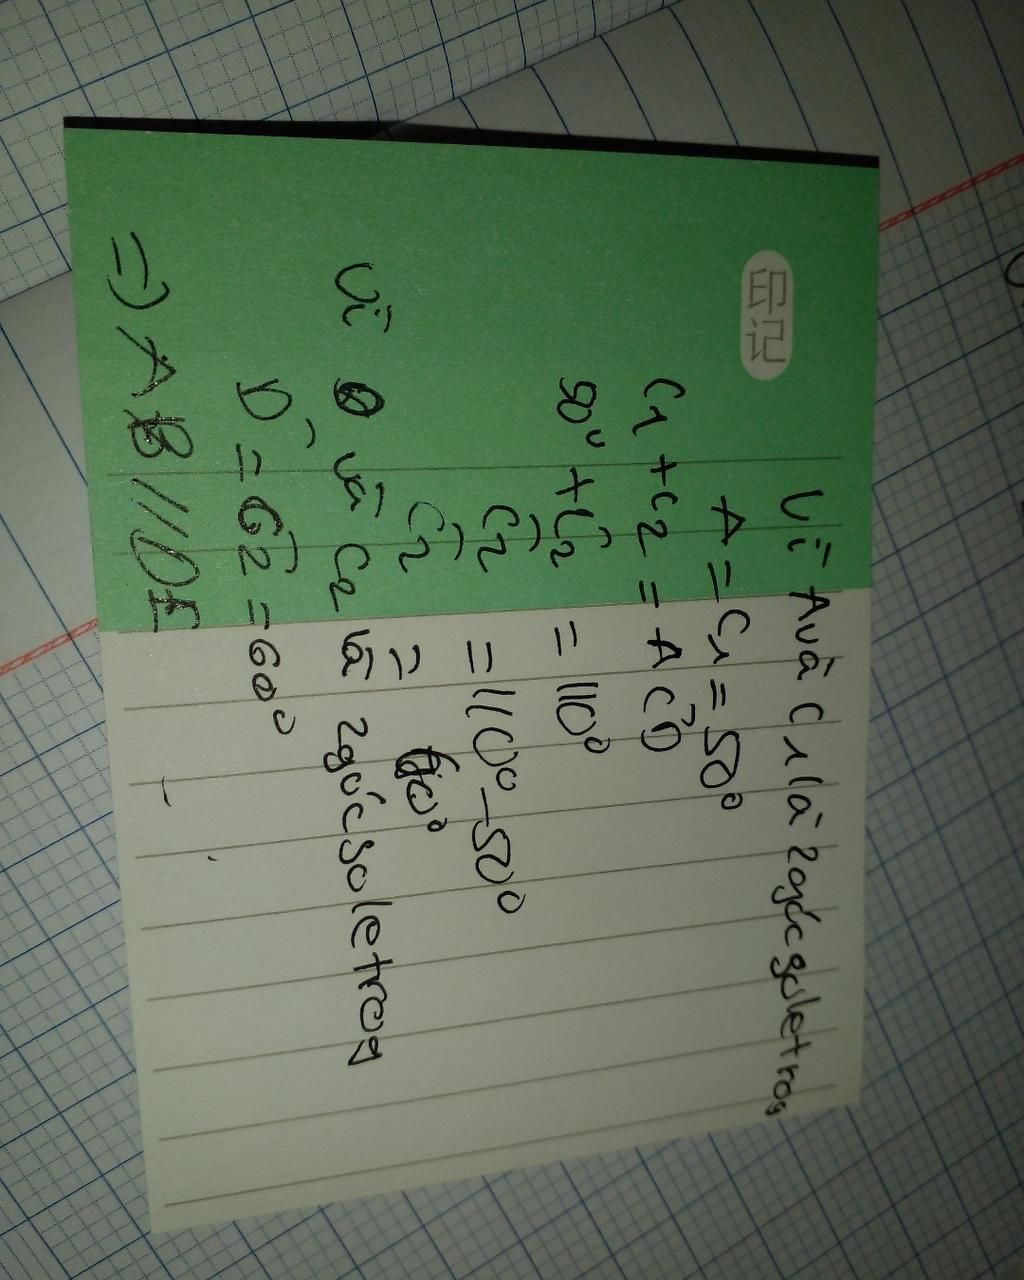 印记
Vì A và C1 là 2 góc sole trog
A = C1 = 50°
C1 + C2 = ACD
50° + C2 = 110°
C2 = 110° - 50°
C2 = 60°
Vì D và C2 là 2 góc sole trog
D = C2 = 60°
=) AB // DE